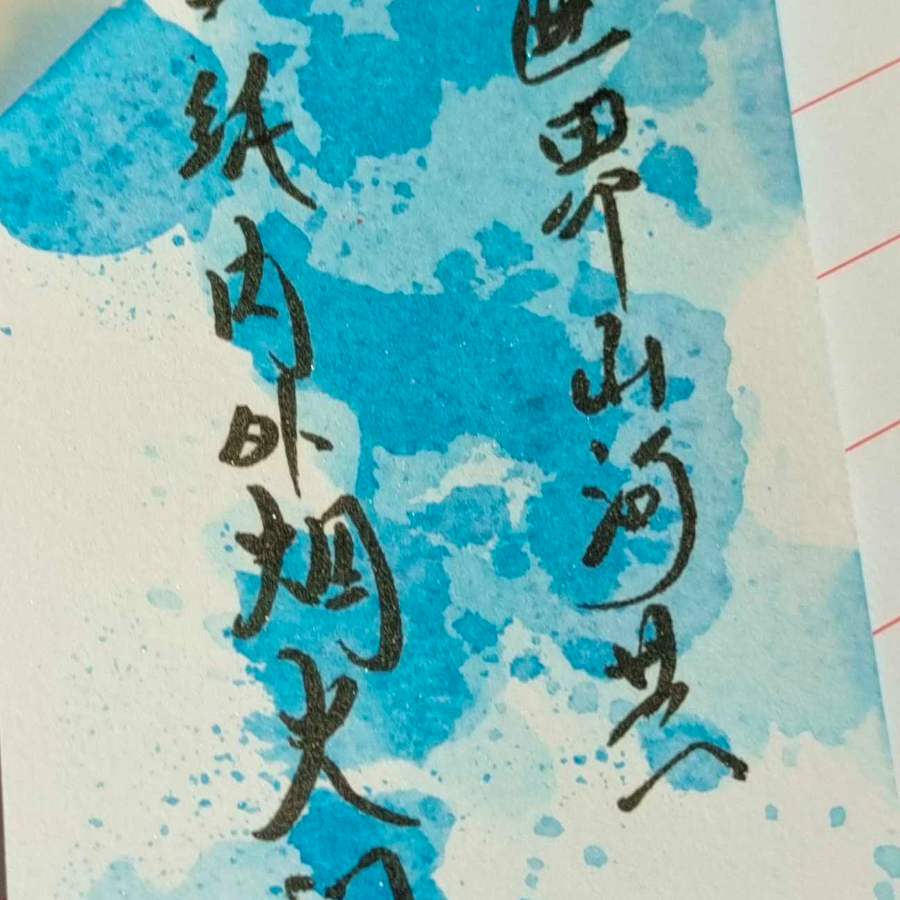 世界山河共
纸内外烟火